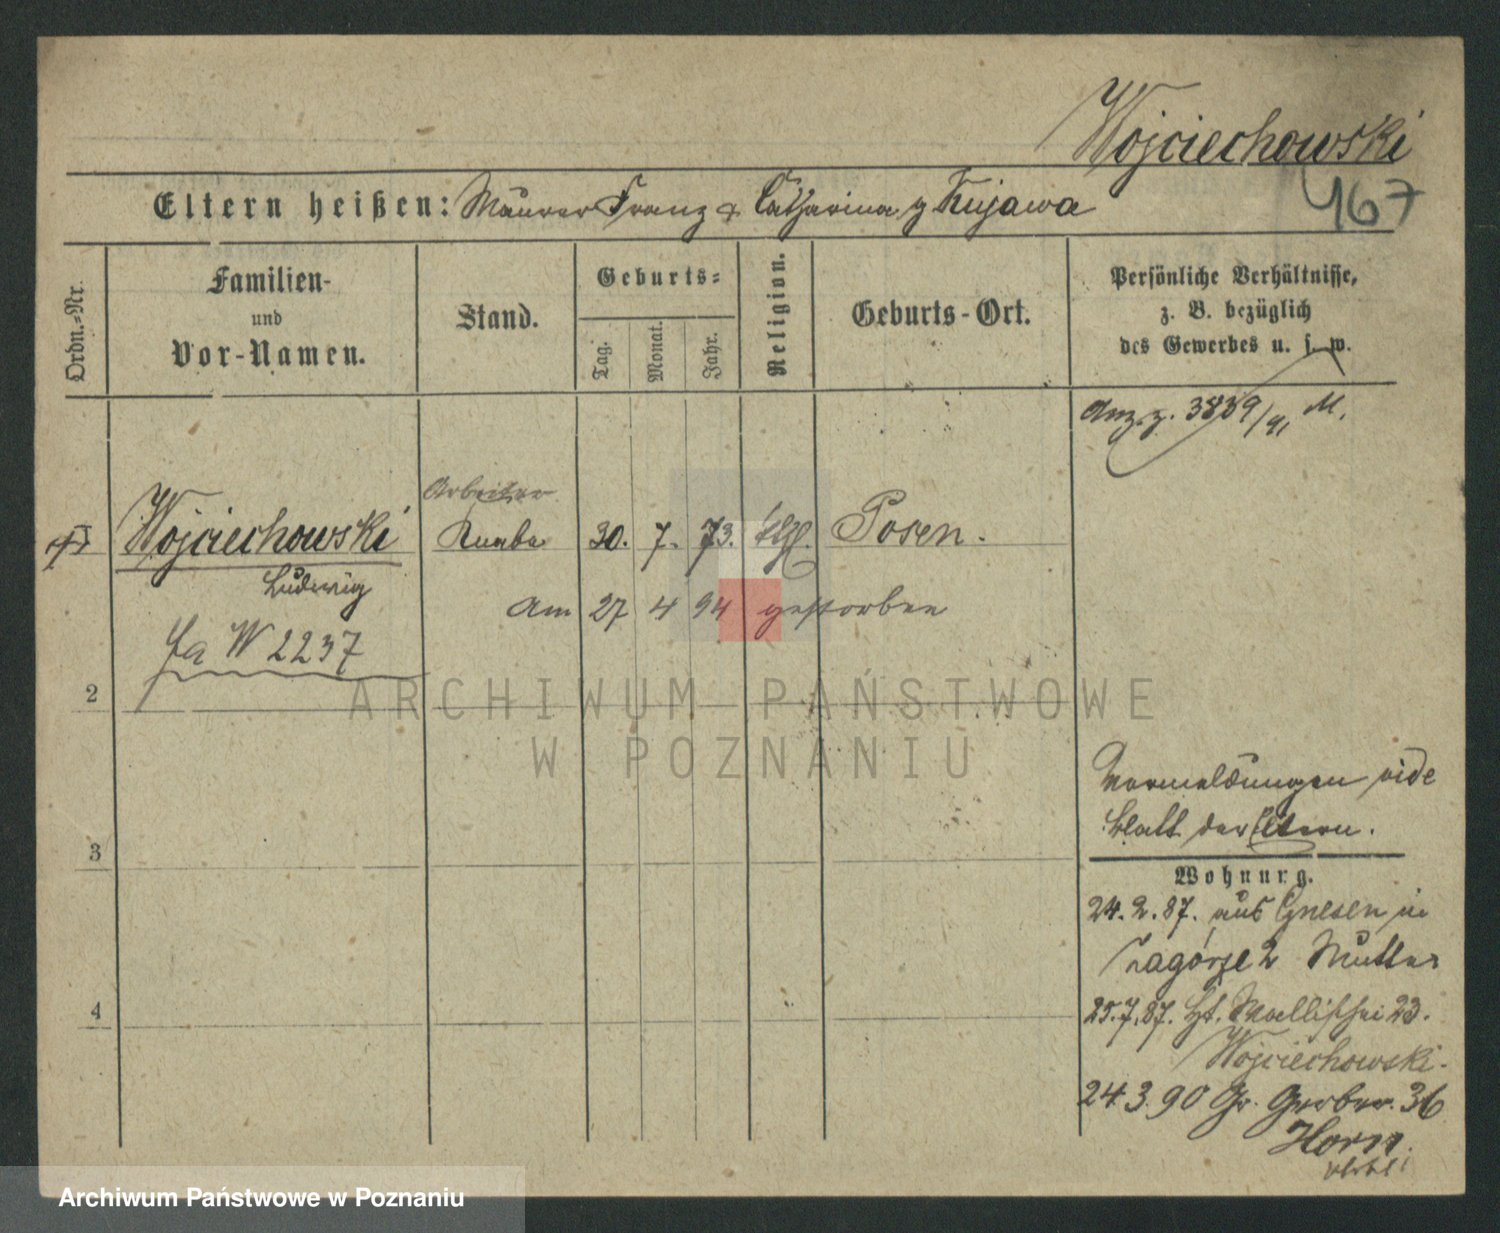 Wojciechowski
467
Eltern heißen: Maurer Franz & Catharina g Kujawa
Ordn.-Nr.
Familien-
und
Vor-Namen.
Stand.
Geburts-
Tag.
Monat.
Jahr.
Religion.
Geburts-Ort.
Persönliche Verhältnisse,
z. B. bezüglich
des Gewerbes u. s. w.
3839/91 M.
Arbeiter
Wojciechowski Knabe 30. 7. 73. Posen.
Ludwig
am 27 4 94 gestorben
fa W 2237
2
ARCHIWUM PAŃSTWOWE
W POZNANIU
Vormeldungen vide
Blatt der Eltern.
3
Wohnung.
24.2.87. aus Gnesen in
Zagórze 2 Mutter
4
25.7.87. Wallischei 23.
Wojciechowski.
24.3.90 Gr. Gerber. 36
Horn
Archiwum Państwowe w Poznaniu